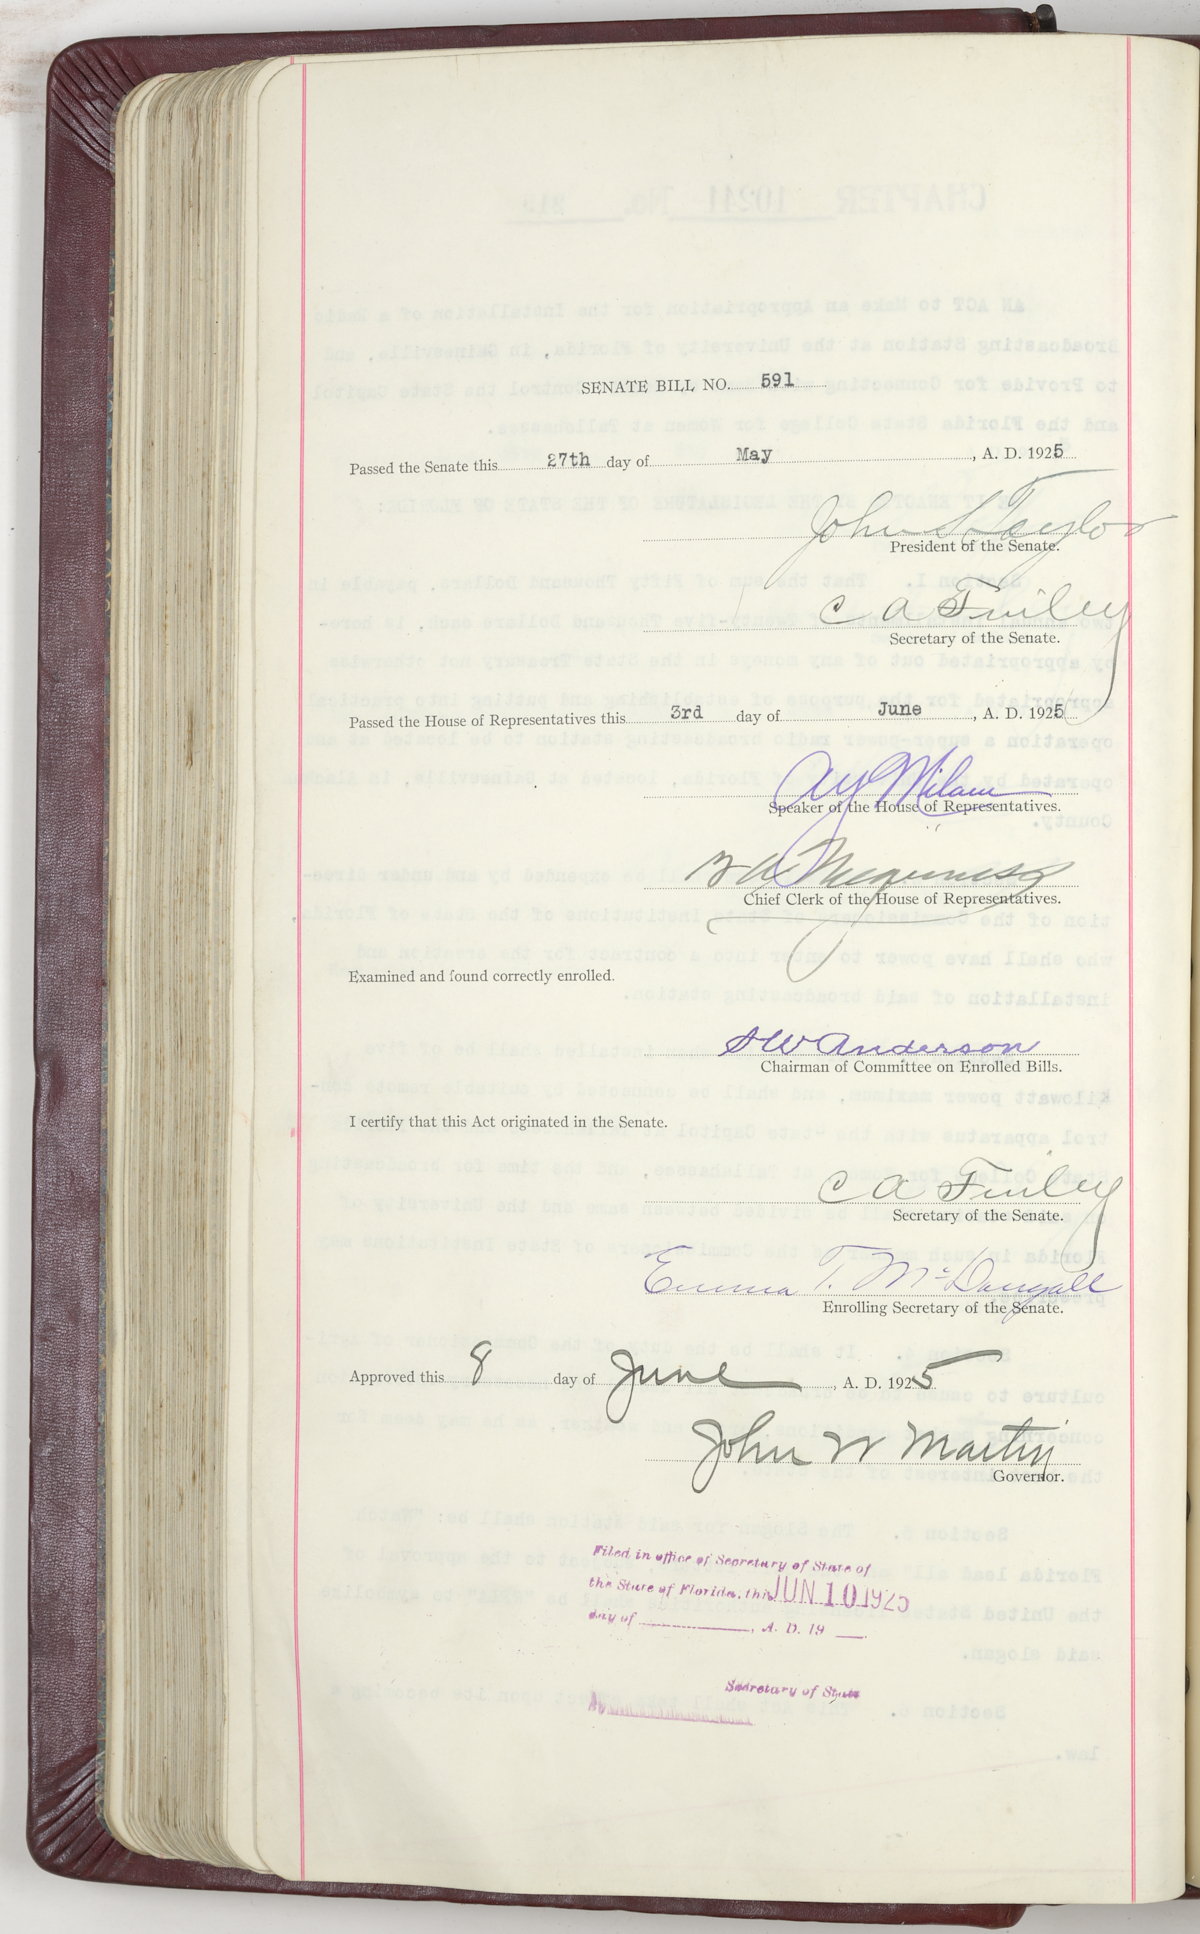 SENATE BILL NO. 591
Passed the Senate this 27th day of May, A. D. 1925
John S Taylor
President of the Senate.
C A Finley
Secretary of the Senate.
Passed the House of Representatives this 3rd day of June, A. D. 1925
A Y Milam
Speaker of the House of Representatives.
Chief Clerk of the House of Representatives.
Examined and found correctly enrolled.
S W Anderson
Chairman of Committee on Enrolled Bills.
I certify that this Act originated in the Senate.
C A Finley
Secretary of the Senate.
Emma T. McDougall
Enrolling Secretary of the Senate.
Approved this 8 day of June, A. D. 1925
John W Martin
Governor.
Filed in office of Secretary of State of
the State of Florida, this JUN 10 1925
day of , A. D. 19
Secretary of State